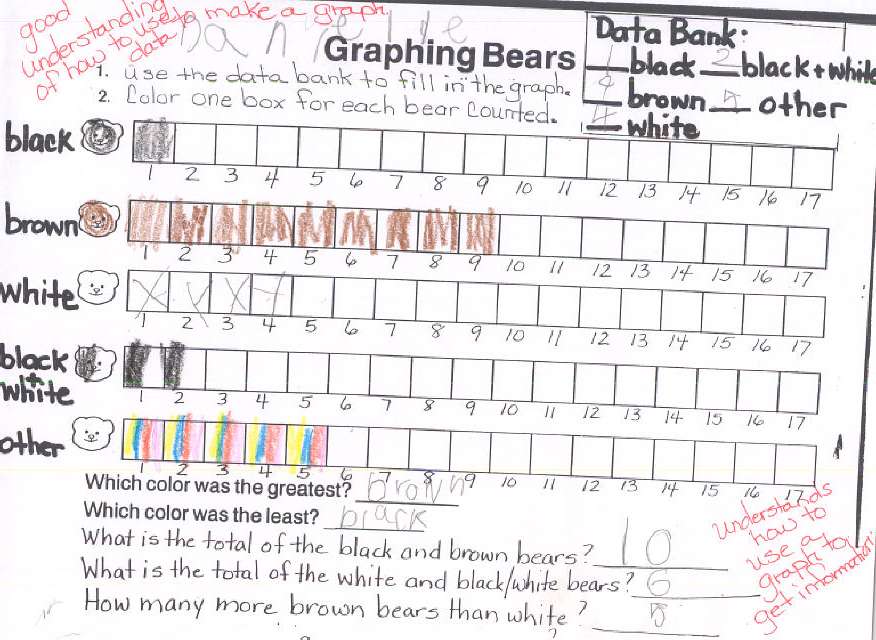 good
understanding
of how to use to make a graph
data
Danielle
Graphing Bears
1. Use the data bank to fill in the graph.
2. Color one box for each bear counted.
Data Bank:
1 black 2 black + white
9 brown 5 other
4 white
black
1 2 3 4 5 6 7 8 9 10 11 12 13 14 15 16 17
brown
1 2 3 4 5 6 7 8 9 10 11 12 13 14 15 16 17
white
1 2 3 4 5 6 7 8 9 10 11 12 13 14 15 16 17
black
+
white
1 2 3 4 5 6 7 8 9 10 11 12 13 14 15 16 17
other
1 2 3 4 5 6 7 8 9 10 11 12 13 14 15 16 17
Which color was the greatest? brown
Which color was the least? black
What is the total of the black and brown bears? 10
What is the total of the white and black/white bears? 6
How many more brown bears than white? 5
understands
how to
use a
graph to
get information!